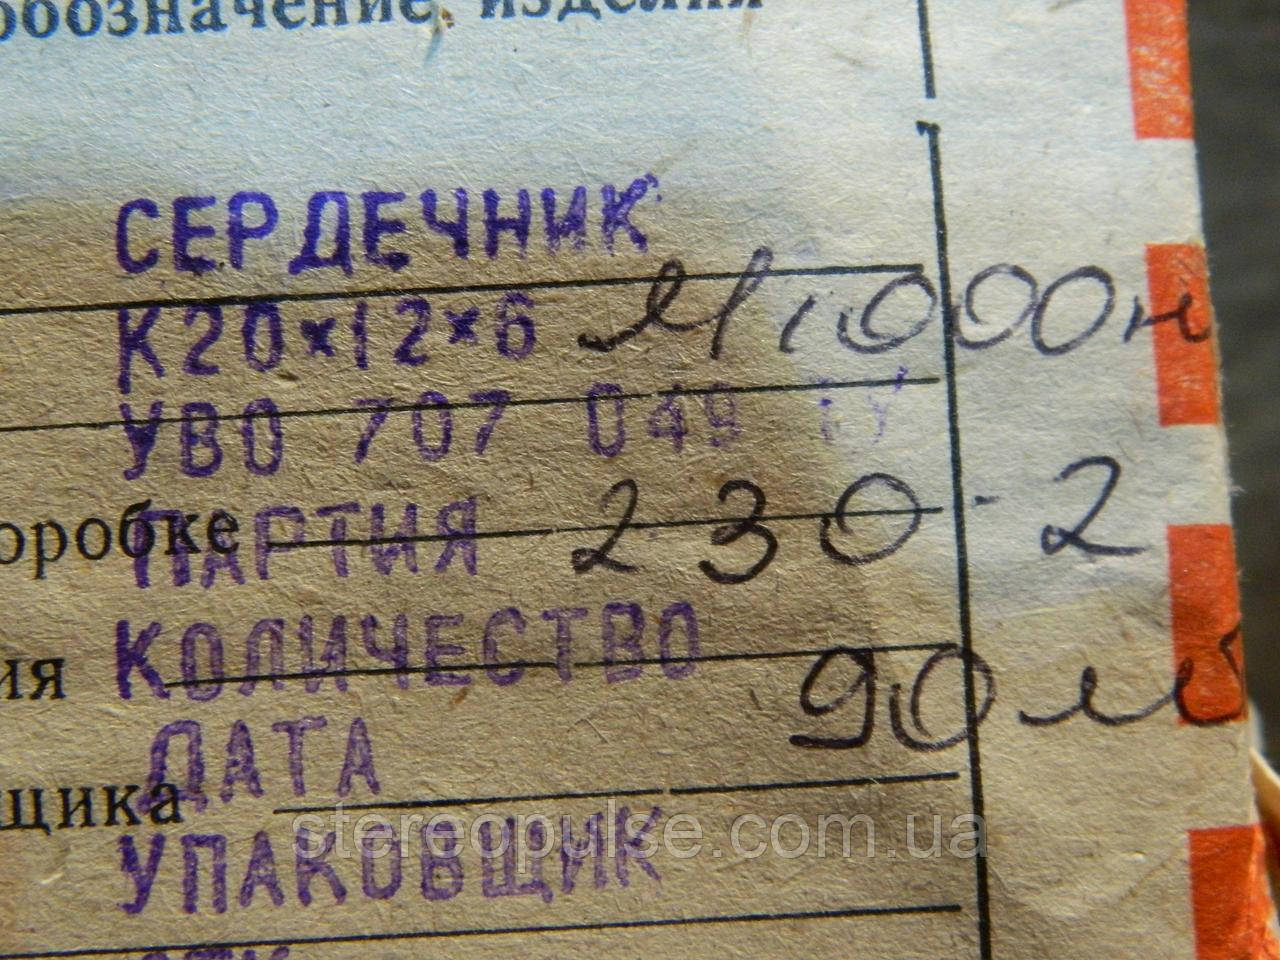 обозначение изделия
СЕРДЕЧНИК
К20×12×6 М1000н
УВО 707 049 ТУ
оробке
ПАРТИЯ 230-2
ия
КОЛИЧЕСТВО 90
ДАТА
щика
stereopulse.com.ua
УПАКОВЩИК